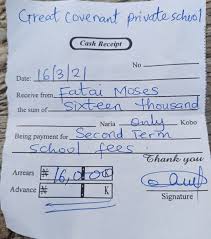 Great Covenant private school
Cash Receipt
No
Date: 16/3/21
Receive from Fatai Moses
the sum of Sixteen thousand
Naria only Kobo
Being payment for Second Term
school fees
Thank you
Arrears ₦ 16,000 K
Advance ₦ K
Signature